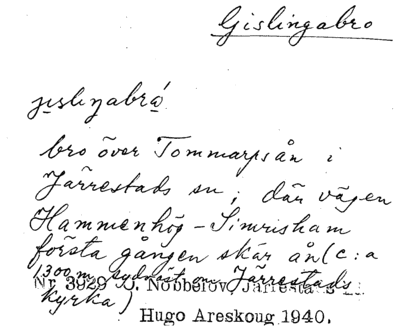 Gislingabro
jıslıŋabrá
bro över Tommarpsån i
Järrestads sn, där vägen
Hammenhög-Simrisham
första gången skär ån (c:a
1300 m sydväst om Järrestads
kyrka)
Nr 3929 J. Nobbelöv, Järresta
Hugo Areskoug 1940.